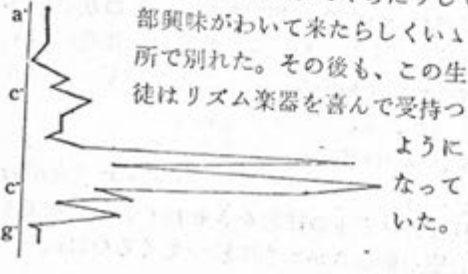 a'
部興味がわいて来たらしくいゝ
所で別れた。その後も、この生
c'
徒はリズム楽器を喜んで受持つ
ように
c'
なって
いた。
g'